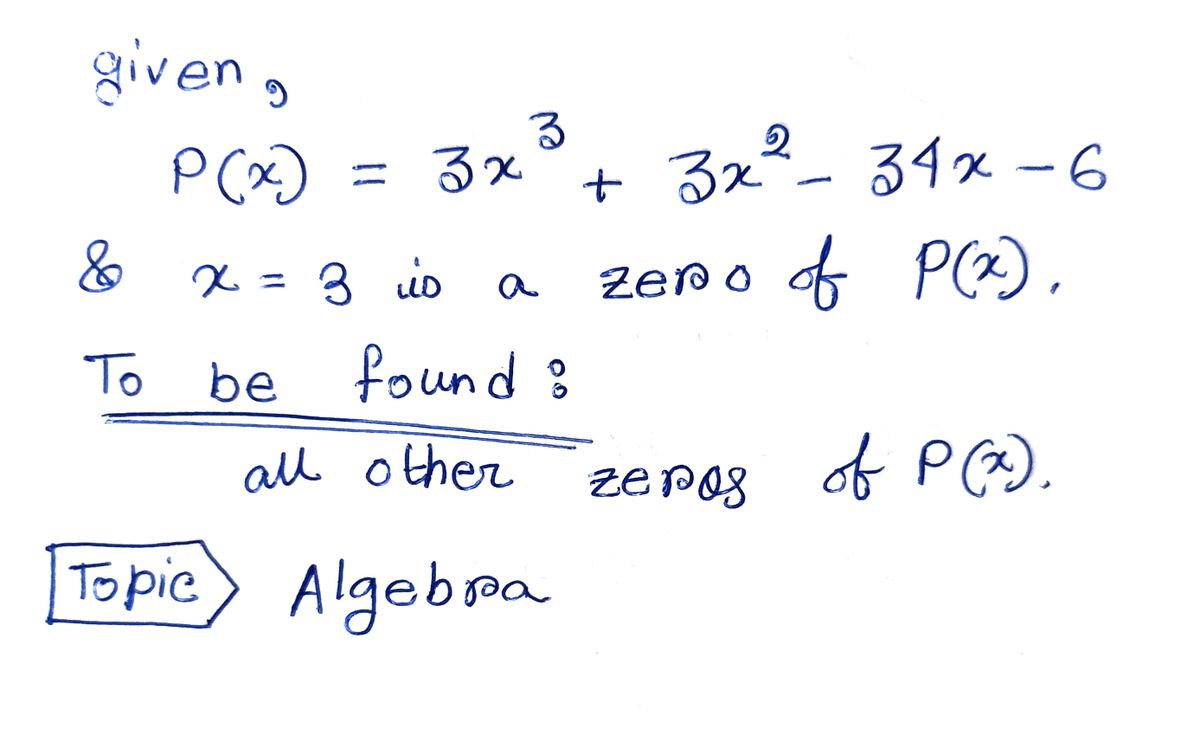 given,
P(x) = 3x³ + 3x² - 34x - 6
& x = 3 is a zero of P(x).
To be found :
all other zeros of P(x).
Topic Algebra